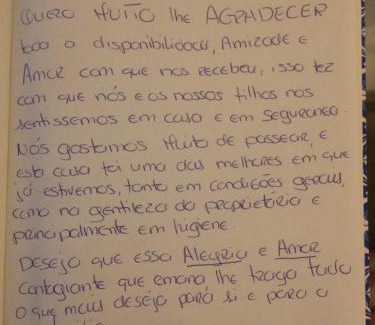 Quero muito lhe AGRADECER
toda a disponibilidade, Amizade e
Amor com que nos recebeu, isso fez
com que nós e os nossos filhos nos
sentissemos em casa e em segurança.
Nós gostamos muito de passear, e
esta casa foi uma das melhores em que
já estivemos, tanto em condições gerais,
como na gentileza da proprietária e
principalmente em higiene
Desejo que essa Alegria e Amor
contagiante que emana, lhe traga tudo
o que mais deseja para si e para a